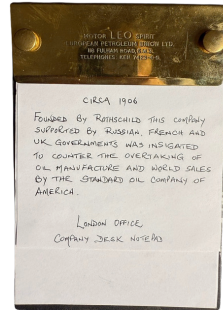 MOTOR LEO SPIRIT
EUROPEAN PETROLEUM UNION LTD.
FULHAM ROAD,
TELEPHONES KEN
CIRCA 1906
FOUNDED BY ROTHSCHILD THIS COMPANY
SUPPORTED BY RUSSIAN, FRENCH AND
UK GOVERNMENTS WAS INSIGATED
TO COUNTER THE OVERTAKING OF
OIL MANUFACTURE AND WORLD SALES
BY THE STANDARD OIL COMPANY OF
AMERICA.
LONDON OFFICE,
COMPANY DESK NOTEPAD